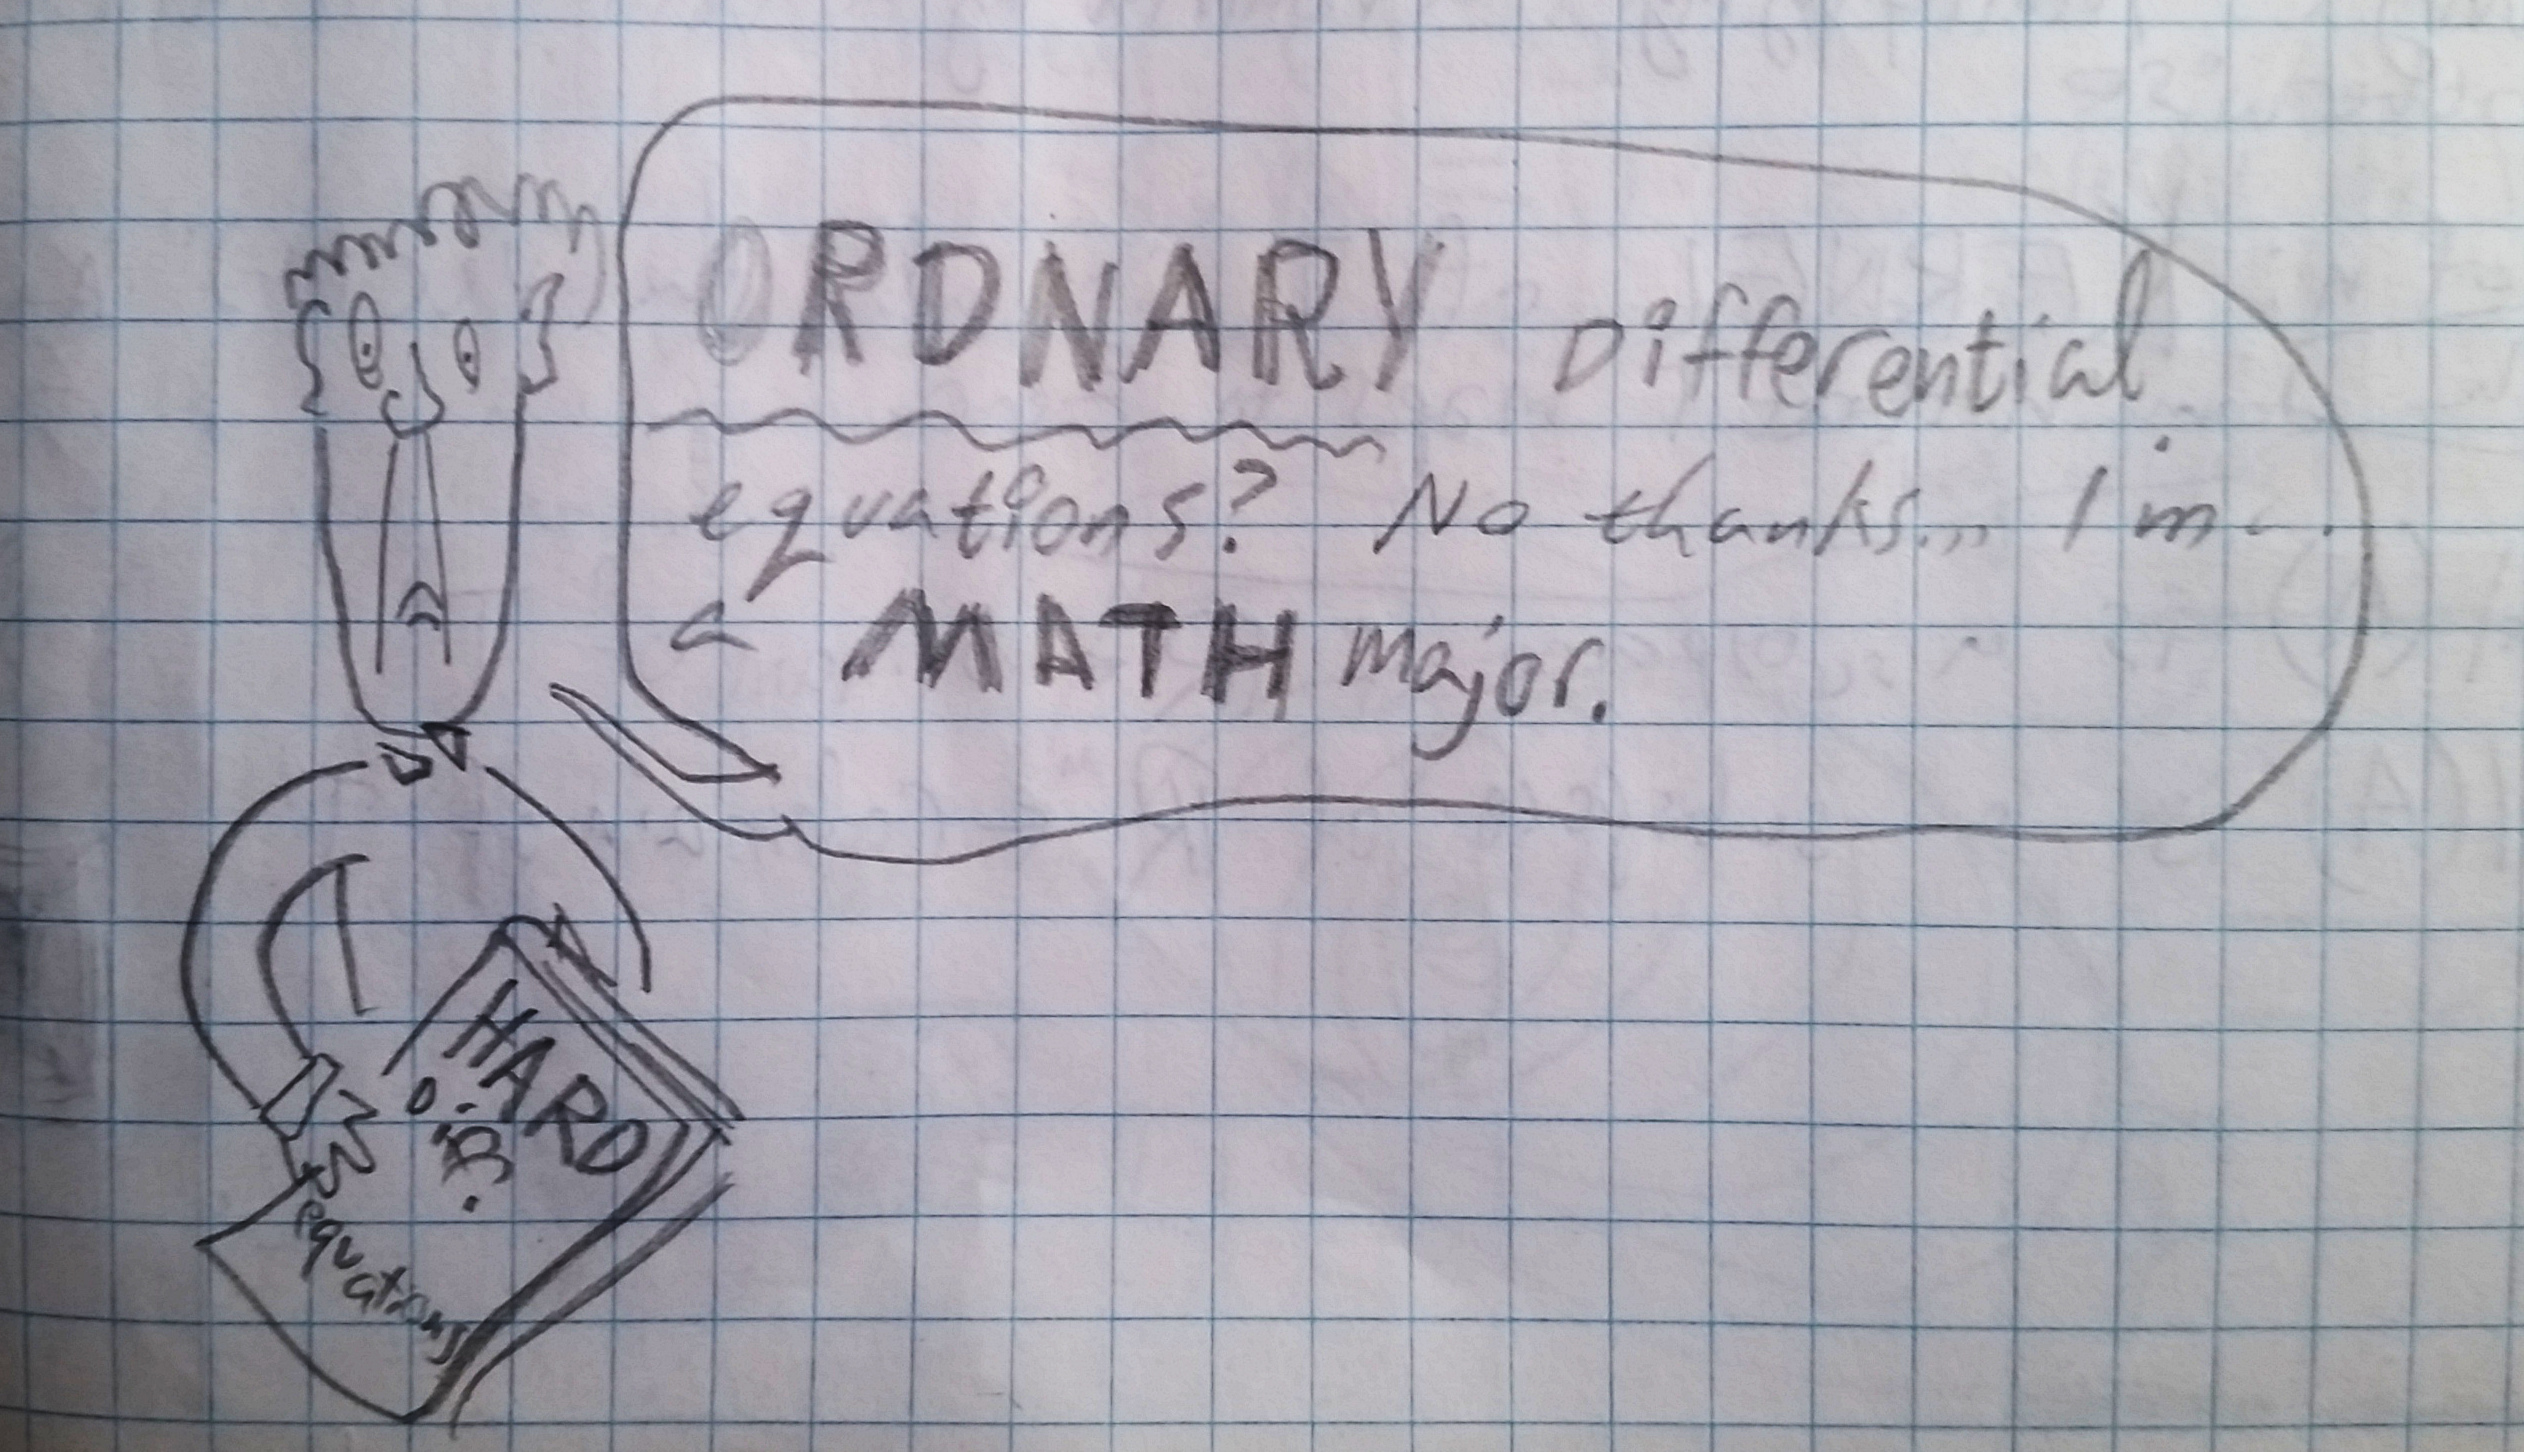 ORDNARY Differential
equations? No thanks... I'm
a MATH major.
HARD
Diff.
equations